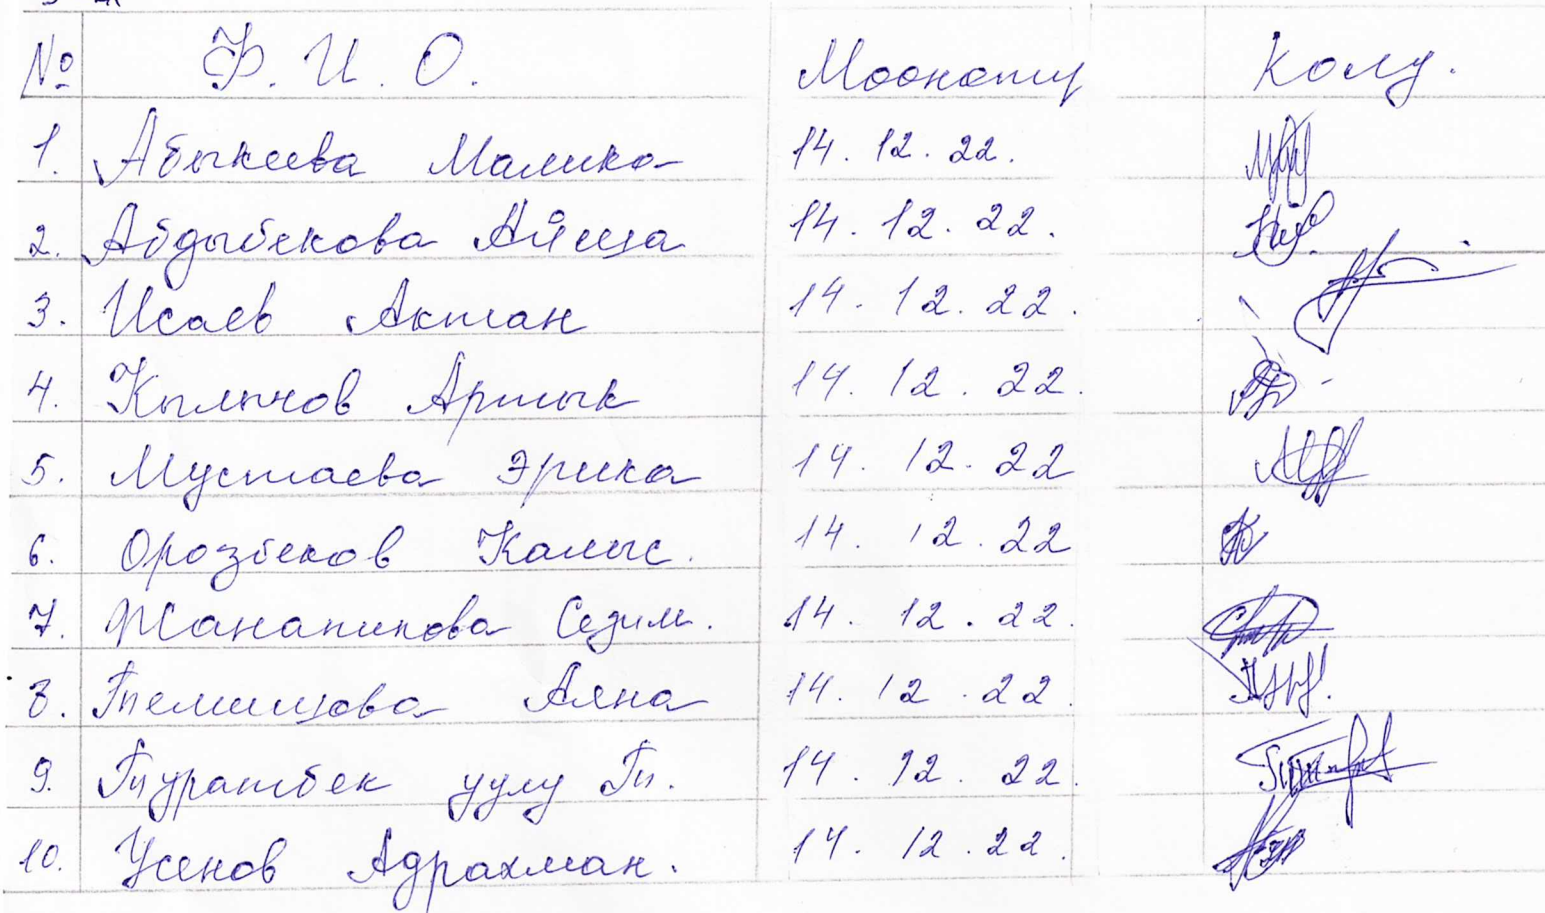 № Ф. И. О. Мооноту Колу.
1. Абыкеева Малика 14. 12. 22.
2. Абдыбекова Айша 14. 12. 22.
3. Исаев Актан 14. 12. 22.
4. Кылычов Артык 14. 12. 22.
5. Мустаева Эрика 14. 12. 22
6. Орозбеков Калыс. 14. 12. 22
7. Жанапикова Сезим. 14. 12. 22.
8. Аяна 14. 12. 22.
9. Туратбек уулу Т. 14. 12. 22.
10. Усенов Адрахман. 14. 12. 22.